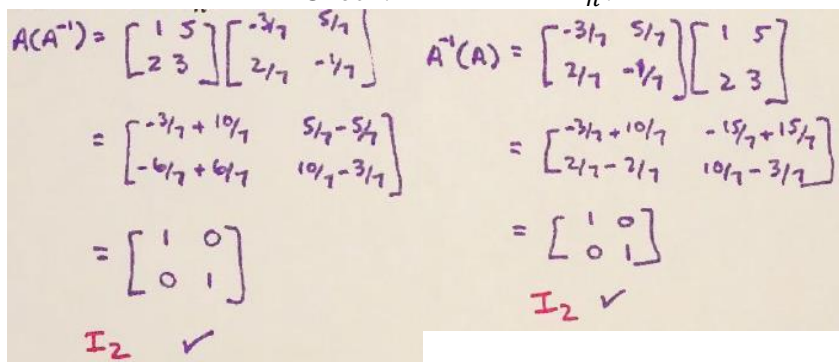 A(A⁻¹) = [1 5 2 3] [-3/7 5/7 2/7 -1/7]
= [-3/7 + 10/7 5/7 - 5/7 -6/7 + 6/7 10/7 - 3/7]
= [1 0 0 1]
I₂ ✓
A⁻¹(A) = [-3/7 5/7 2/7 -1/7] [1 5 2 3]
= [-3/7 + 10/7 -15/7 + 15/7 2/7 - 2/7 10/7 - 3/7]
= [1 0 0 1]
I₂ ✓